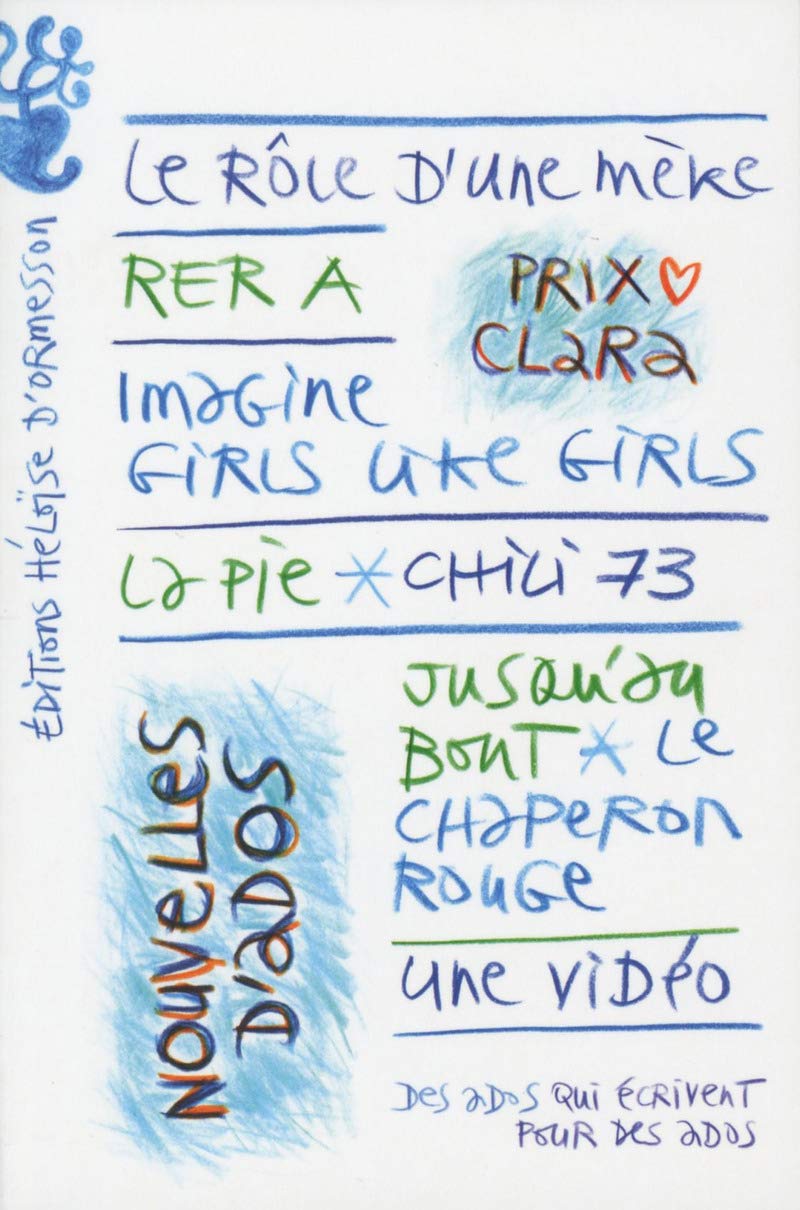 Le Rôle D'une mère
RER A
PRIX
CLARA
Imagine
GIRLS Like GIRLS
La Pie * CHILI 73
Jusqu'au
Bout * Le
CHAPERON
ROUGE
Une Vidéo
Des ados qui écrivent
pour des ados
Nouvelles
D'ados
Éditions Héloïse d'Ormesson